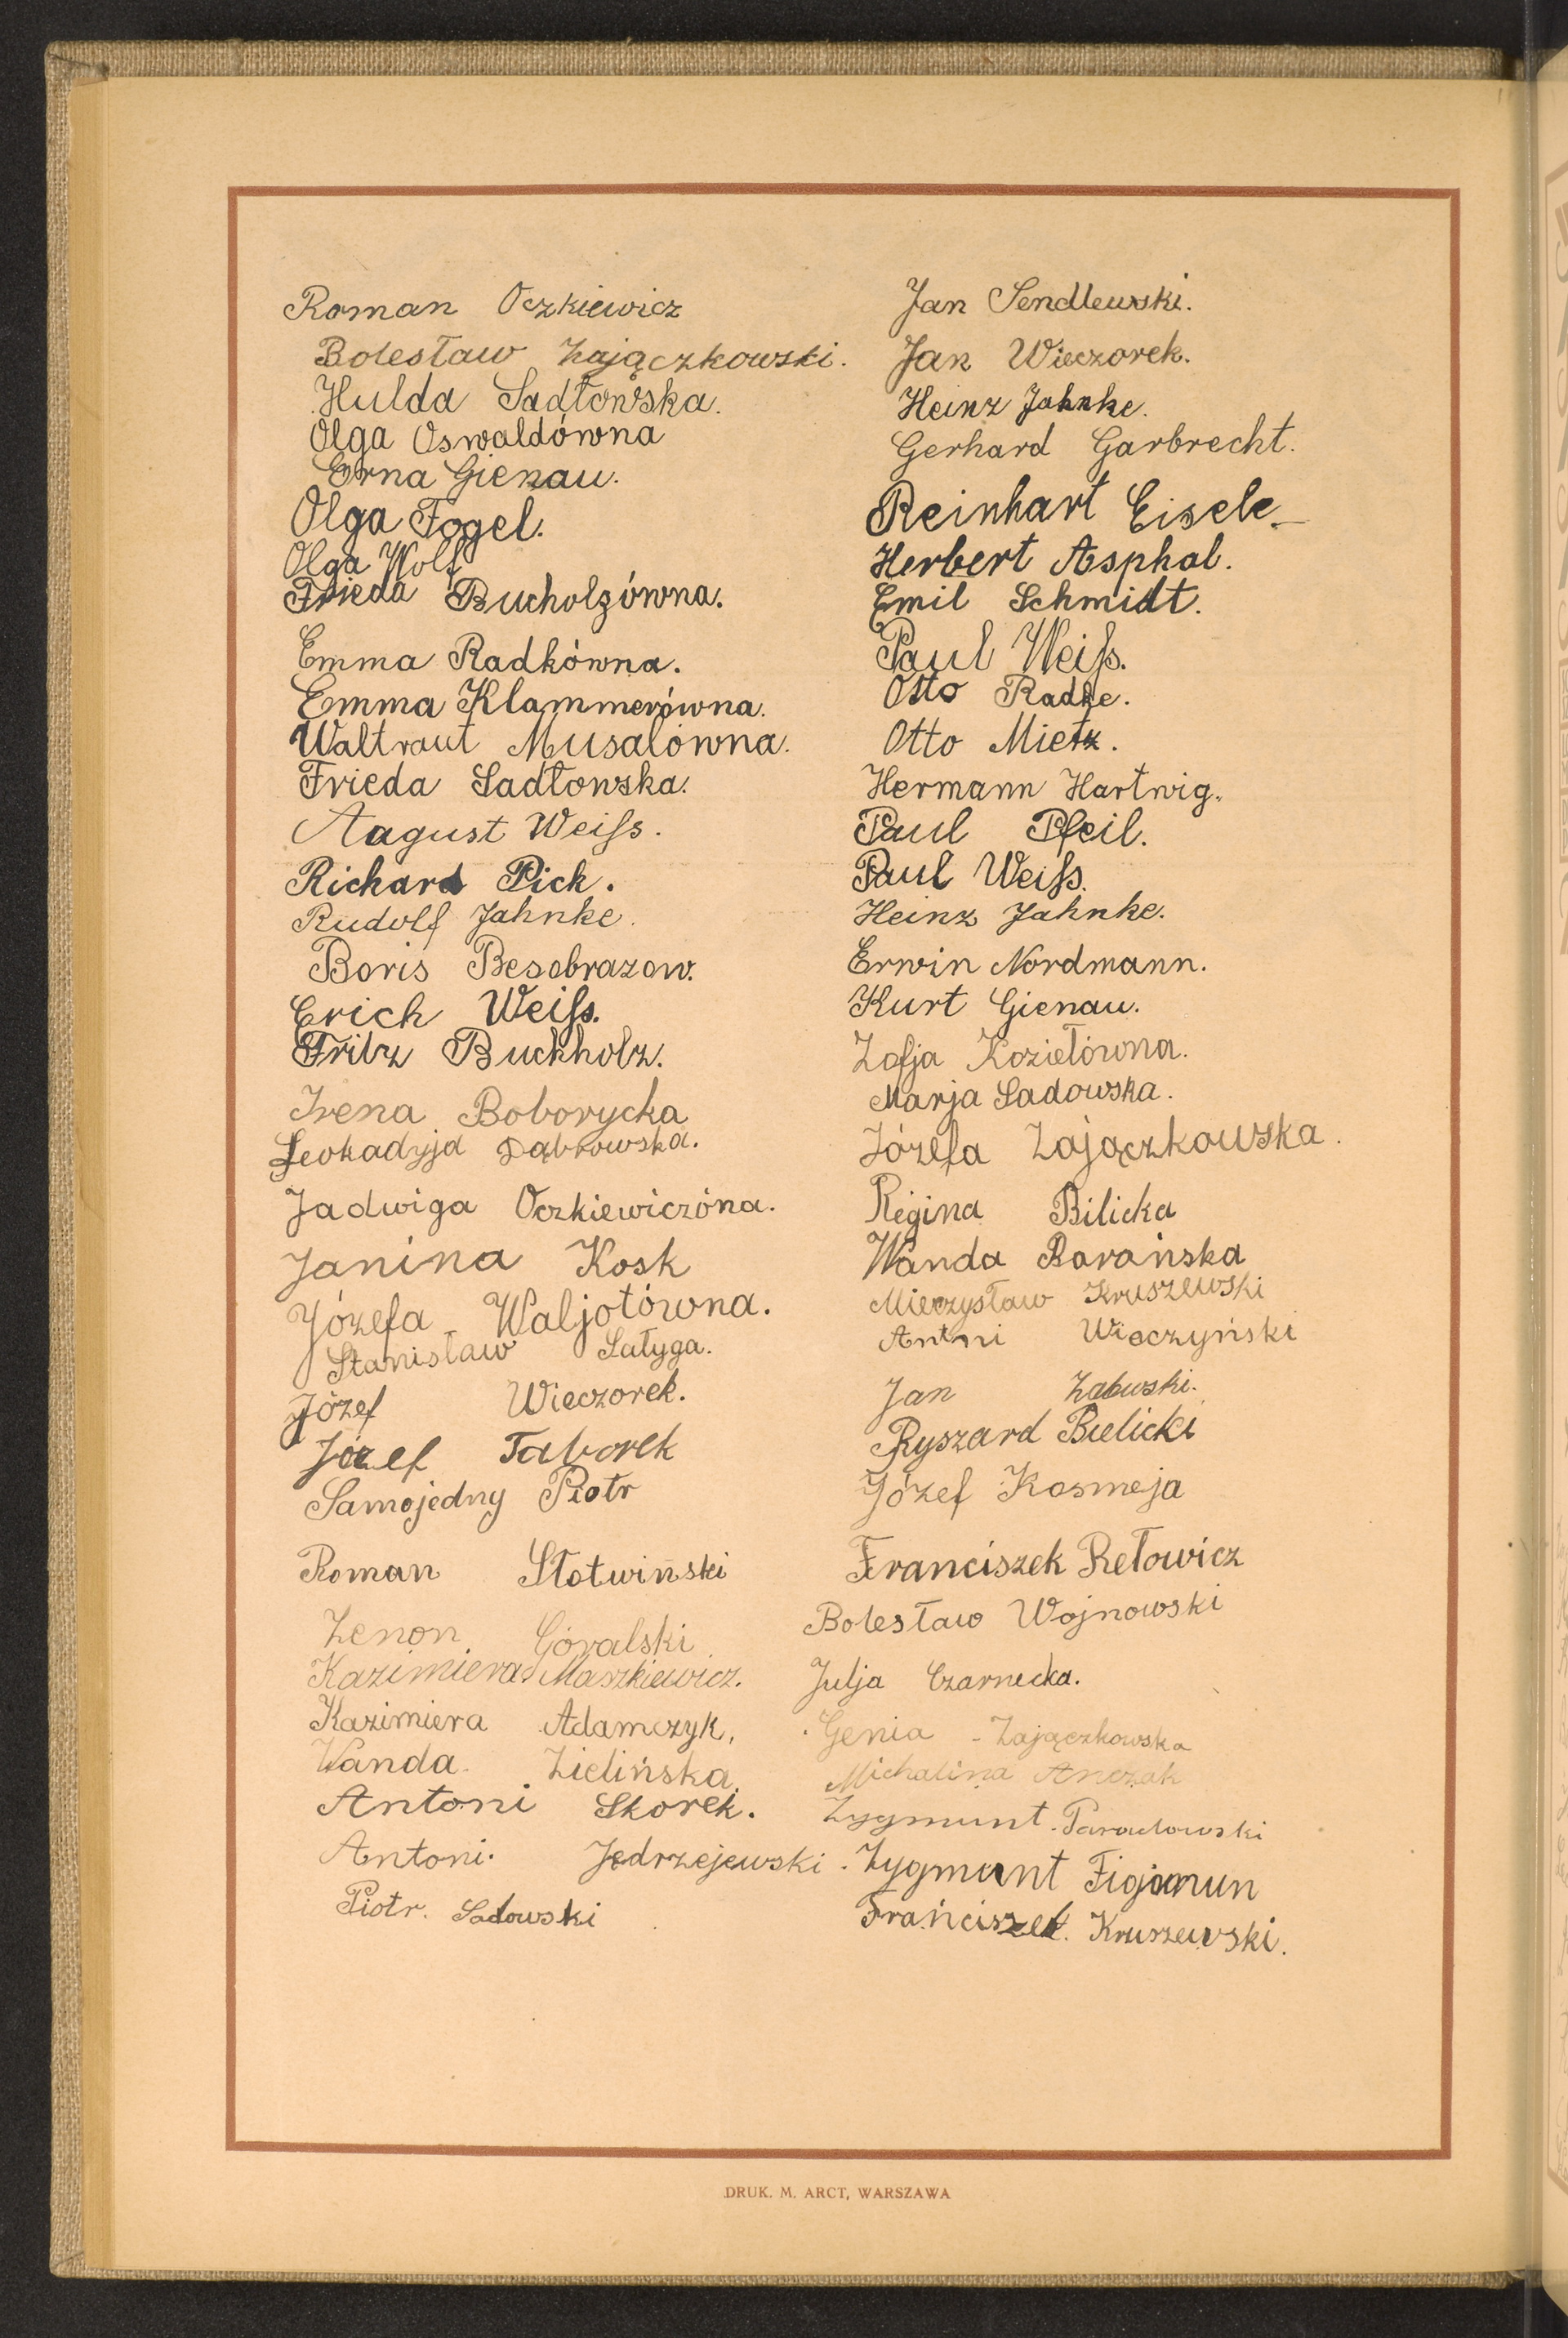 Roman Oczkiewicz
Bolesław Zajączkowski.
Hulda Sadłowska.
Olga Oswaldówna
Erna Gienau.
Olga Fogel.
Olga Wolf
Frieda Bucholzówna.
Emma Radkówna.
Emma Klammerówna.
Waltraut Musalówna.
Frieda Sadłowska.
August Weiſs.
Richard Pick.
Rudolf Jahnke.
Boris Besobrazow.
Erich Weiſs.
Fritz Buckholz.
Irena Boborycka
Leokadyja Dąbrowska.
Jadwiga Oczkiewiczóna.
Janina Kosk
Józefa Waljotówna.
Stanisław Sałyga.
Józef Wieczorek.
Józef Taborek
Samojedny Piotr
Roman Słotwiński
Zenon Góralski
Kazimiera Maszkiewicz.
Kazimiera Adamczyk,
Wanda Zielińska
Antoni Skorek.
Antoni Jędrzejewski.
Piotr. Sadowski
Jan Sendlewski.
Jan Wieczorek.
Heinz Jahnke.
Gerhard Garbrecht.
Reinhart Eisele
Herbert Asphal.
Emil Schmidt.
Paul Weiſs.
Otto Radke.
Otto Mietz.
Hermann Hartwig.
Paul Pfeil.
Paul Weiſs.
Heinz Jahnke.
Erwin Nordmann.
Kurt Gienau.
Zofja Koziełówna.
Marja Sadowska.
Józefa Zajączkowska.
Regina Bilicka
Wanda Barańska
Mieczysław Kruszewski
Antni Wieczyński
Jan
Ryszard Bielicki
Józef Kosmeja
Franciszek Rełowicz
Bolesław Wojnowski
Julja Czarnecka.
Genia - Zajączkowska
Michalina Anczak
Zygmunt Paradowski
Zygmunt
Franciszek Kruszewski.
DRUK. M. ARCT, WARSZAWA